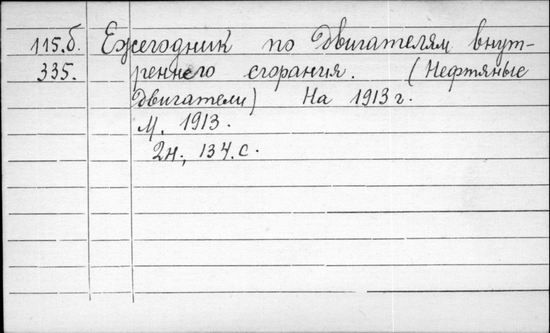 115.б. Ежегодник по двигателям внут-
335. реннего сгорания. (Нефтяные
двигатели) На 1913 г.
М. 1913.
2н., 134.с.